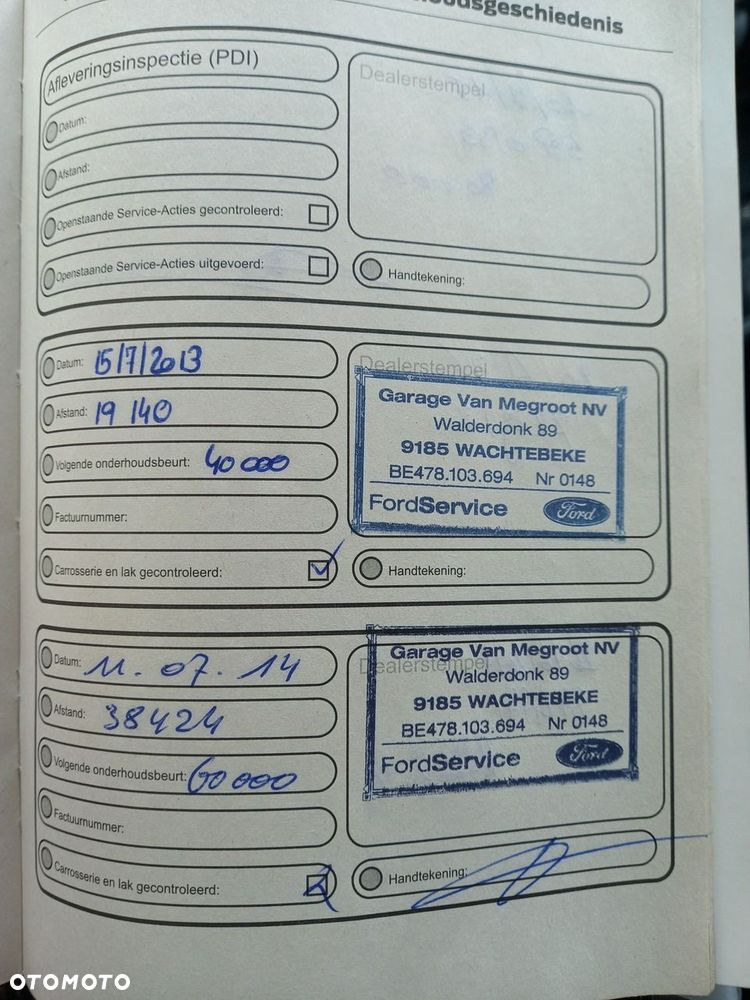 geschiedenis
Afleveringsinspectie (PDI)
Datum:
Afstand:
Openstaande Service-Acties gecontroleerd:
Openstaande Service-Acties uitgevoerd:
Dealerstempel
Handtekening:
Datum: 15/7/2013
Afstand: 19 140
Volgende onderhoudsbeurt: 40000
Factuurnummer:
Carrosserie en lak gecontroleerd:
Dealerstempel
Garage Van Megroot NV
Walderdonk 89
9185 WACHTEBEKE
BE478.103.694 Nr 0148
FordService Ford
Handtekening:
Datum: 11.07.14
Afstand: 38424
Volgende onderhoudsbeurt: 60000
Factuurnummer:
Carrosserie en lak gecontroleerd:
Dealerstempel
Garage Van Megroot NV
Walderdonk 89
9185 WACHTEBEKE
BE478.103.694 Nr 0148
FordService Ford
Handtekening:
OTOMOTO